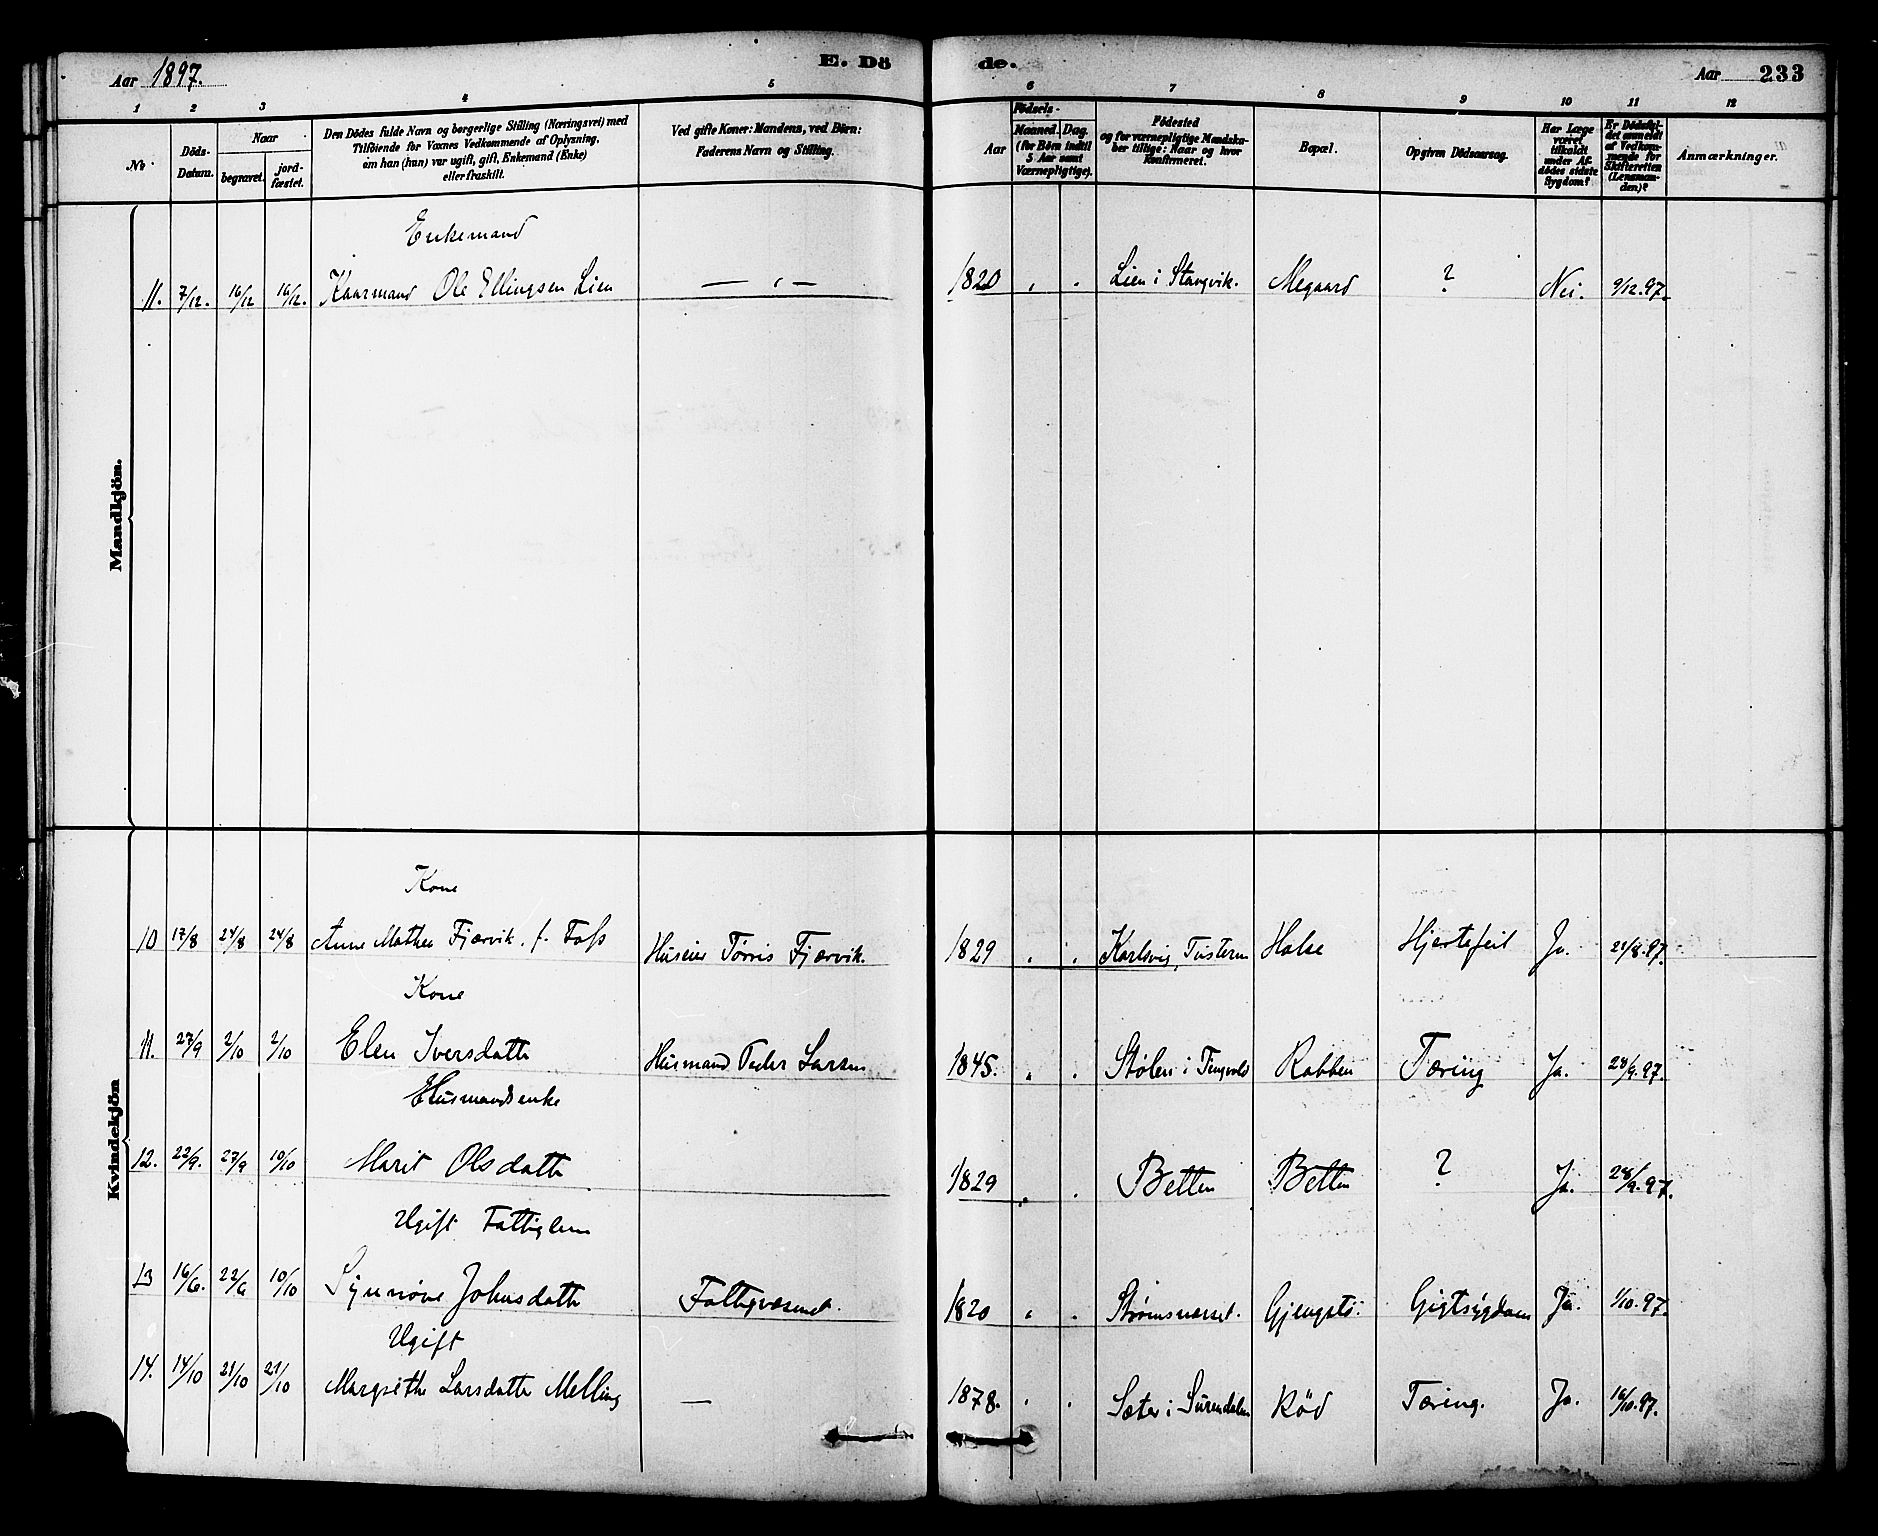 Aar 1897.
E. Dö
de.
Aar
233
1 2 3 4 5 6 7 8 9 10 11 12
No
Döds-Datum.
Naar
begravet.
jord-fæstet.
Den Dödes fulde Navn og borgerlige Stilling (Næringsvei) med
Tilföiende for Voxnes Vedkommende af Oplysning,
om han (hun) var ugift, gift, Enkemand (Enke)
eller fraskilt.
Ved gifte Koner: Mandens, ved Börn:
Faderens Navn og Stilling.
Födsels-
Aar
Maaned. Dag.
(for Börn indtil
5 Aar samt
Værnepligtige).
Födested
og for værnepligtige Mandska-
ber tillige: Naar og hvor
Konfirmeret.
Bopæl.
Opgiven Dödsaarsag.
Har Læge
været
tilkaldt
under Af-
dödes sidste
Sygdom?
Er Dödsfal-
det anmeldt
af Vedkom-
mende for
Skifteretten
(Lensman-
den)?
Anmærkninger.
Mandkjön.
Enkemand
11. 7/12. 16/12 16/12. Kaarmand Ole Ellingsen Lien — " — 1820 " . Lien i Stangvik. Megaard ? Nei. 9/12.97.
Kvindekjön
Kone
10 17/8 24/8 24/8 Anne Mathea Fjærvik. f. Foss Huseier Tørris Fjærvik. 1829 . . Karlsvig, Tusteren Halse Hjertefeil Ja. 21/8.97.
Kone
11. 27/9 2/10 2/10 Elen Iversdatte Husmand Peder Larsen 1845. . . Stølen i Tingvold Rabben Tæring Ja. 28/9.97.
Husmandsenke
12. 22/9. 27/9 10/10 Marit Olsdatte 1829 . . Betten Betten ? Ja. 28/9.97.
Ugift Fattiglem
13 16/6. 22/6 10/10 Synnöve Johnsdatte Fattigvæsenet. 1820 . . Strømsnæsset. Gjengstö. Gigtsygdom Ja. 1/10.97.
Ugift
14. 14/10 21/10 21/10 Margrethe Larsdatte Melling — 1878. . . Sæter i Surendalen Rød Tæring. Ja. 16/10.97.